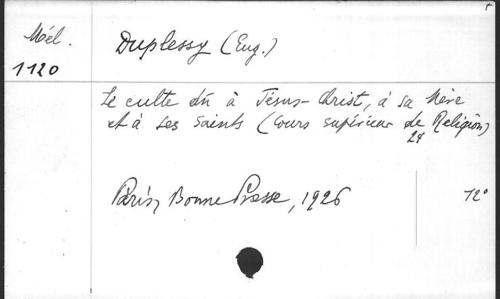 Mél. Duplessy (Eug.)
1120
Le culte dû à Jésus-Christ, à sa Mère
et à ses Saints (Cours supérieur de Religion)
24
Paris, Bonne Presse, 1926 12°